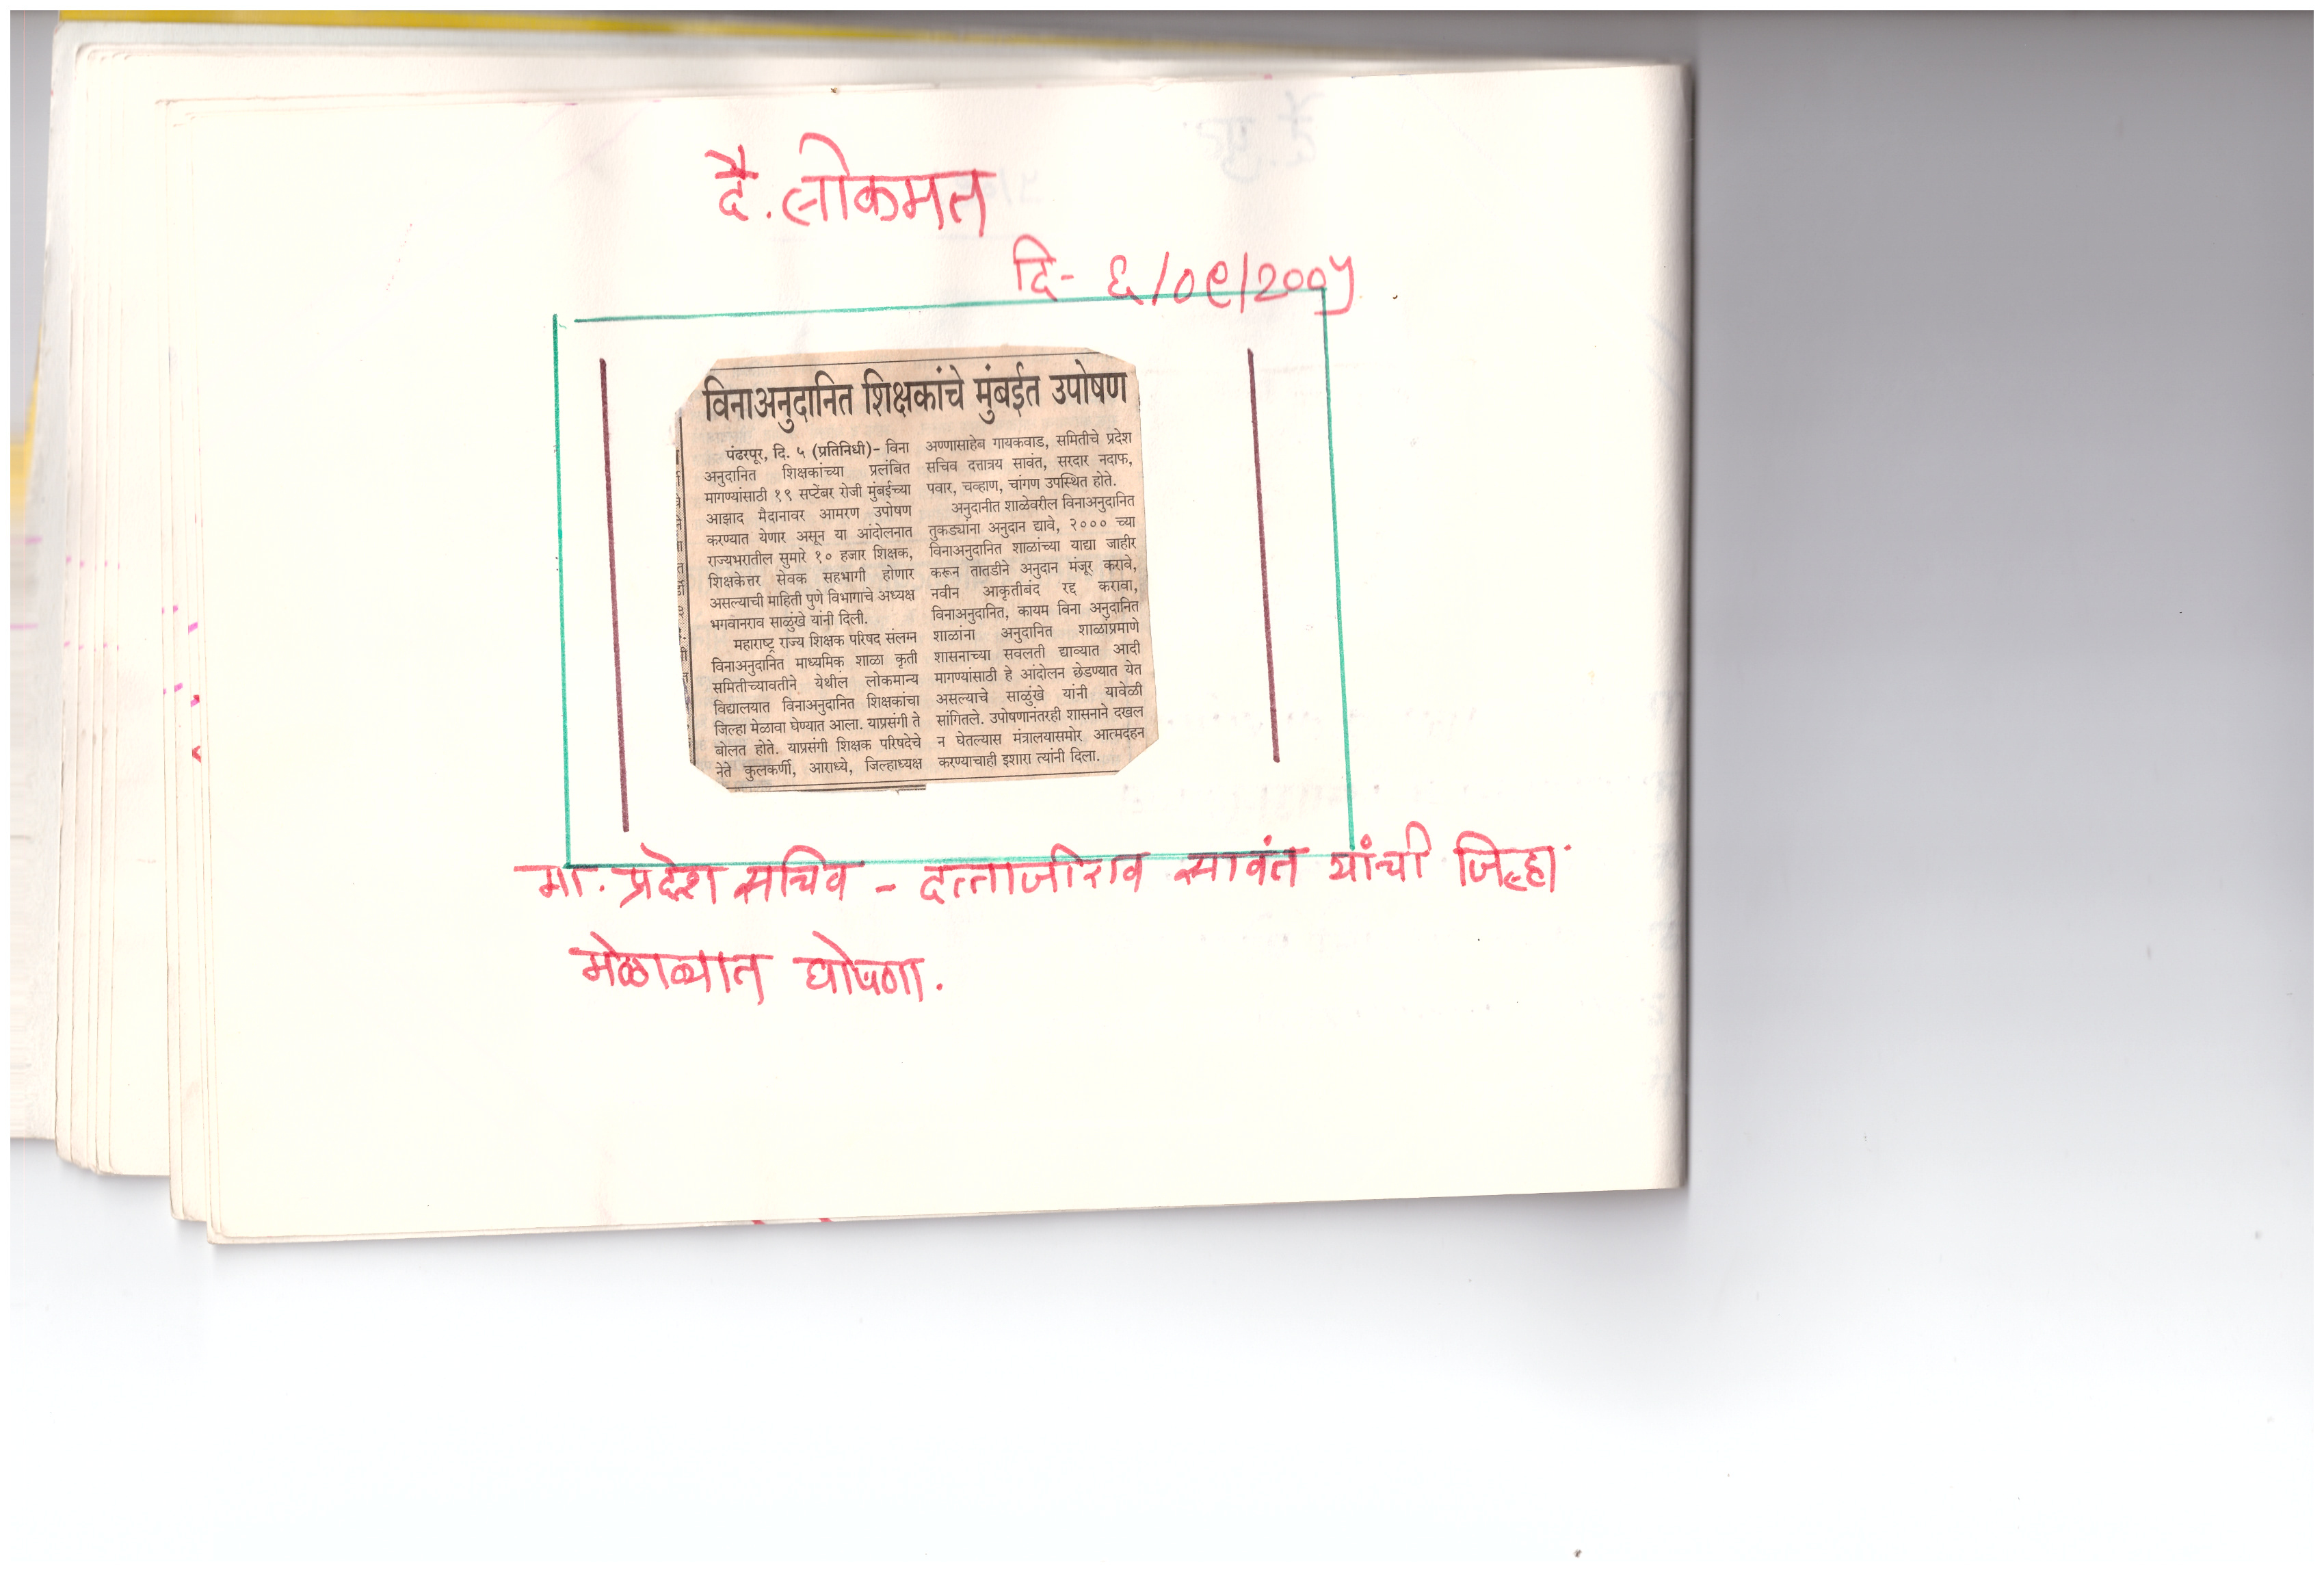 दै. लोकमत
दि- ६/०९/२००५
विनाअनुदानित शिक्षकांचे मुंबईत उपोषण
पंढरपूर, दि. ५ (प्रतिनिधी)- विना
अनुदानित शिक्षकांच्या प्रलंबित
मागण्यांसाठी १९ सप्टेंबर रोजी मुंबईच्या
आझाद मैदानावर आमरण उपोषण
करण्यात येणार असून या आंदोलनात
राज्यभरातील सुमारे १० हजार शिक्षक,
शिक्षकेत्तर सेवक सहभागी होणार
असल्याची माहिती पुणे विभागाचे अध्यक्ष
भगवानराव साळुंखे यांनी दिली.
महाराष्ट्र राज्य शिक्षक परिषद संलग्न
विनाअनुदानित माध्यमिक शाळा कृती
समितीच्यावतीने येथील लोकमान्य
विद्यालयात विनाअनुदानित शिक्षकांचा
जिल्हा मेळावा घेण्यात आला. याप्रसंगी ते
बोलत होते. याप्रसंगी शिक्षक परिषदेचे
नेते कुलकर्णी, आराध्ये, जिल्हाध्यक्ष
अण्णासाहेब गायकवाड, समितीचे प्रदेश
सचिव दत्तात्रय सावंत, सरदार नदाफ,
पवार, चव्हाण, चांगण उपस्थित होते.
अनुदानीत शाळेवरील विनाअनुदानित
तुकड्यांना अनुदान द्यावे, २००० च्या
विनाअनुदानित शाळांच्या याद्या जाहीर
करून तातडीने अनुदान मंजूर करावे,
नवीन आकृतीबंद रद्द करावा,
विनाअनुदानित, कायम विना अनुदानित
शाळांना अनुदानित शाळांप्रमाणे
शासनाच्या सवलती द्याव्यात आदी
मागण्यांसाठी हे आंदोलन छेडण्यात येत
असल्याचे साळुंखे यांनी यावेळी
सांगितले. उपोषणानंतरही शासनाने दखल
न घेतल्यास मंत्रालयासमोर आत्मदहन
करण्याचाही इशारा त्यांनी दिला.
मा. प्रदेश सचिव - दत्ताजीराव सावंत यांची जिल्हा
मेळाव्यात घोषणा.